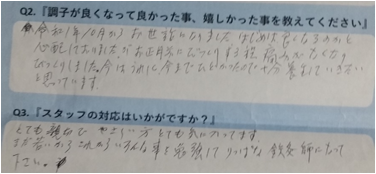 Q2.『調子が良くなって良かった事、嬉しかった事を教えてください』
令和1年10月から お世話になりました はじめは良くなるのかと
心配しておりましたがお正月にびっくりする程 痛みがなくなり
びっくりしました。今はうめに今まで
と思っています。
Q3.『スタッフの対応はいかがですか？』
とても親切で やさしい方 とても気に入ってます。
まだ若いから これからいろんな事を勉強して りっぱな 鍼灸師になって
下さい。